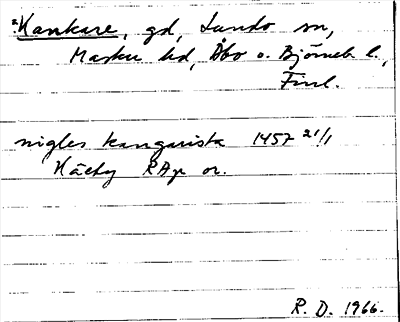 *Kankare, gd, Lundo sn,
Masku hd, Åbo o. Björneb. l.,
Finl.
nigles kangarista 1457 21/1
RAp or.
R. D. 1966.